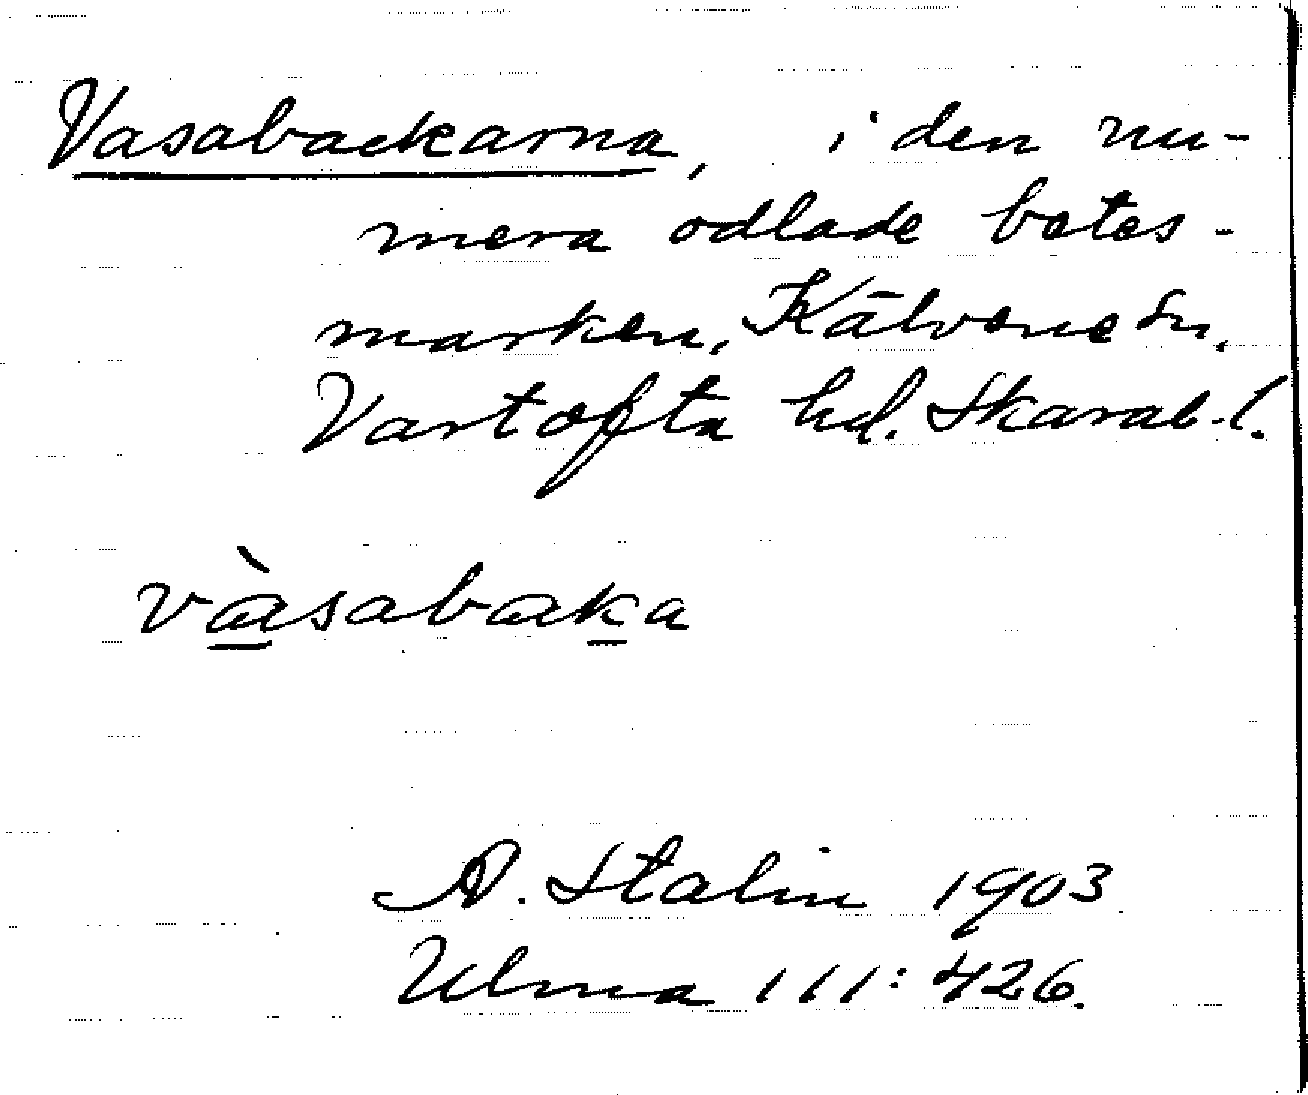 Vasabackarna, i den nu-
mera odlade betes-
marken, Kälvene sn,
Vartofta hd. Skarab. l.
vàsabaka
A. Stalin 1903
Ulma 111:426.